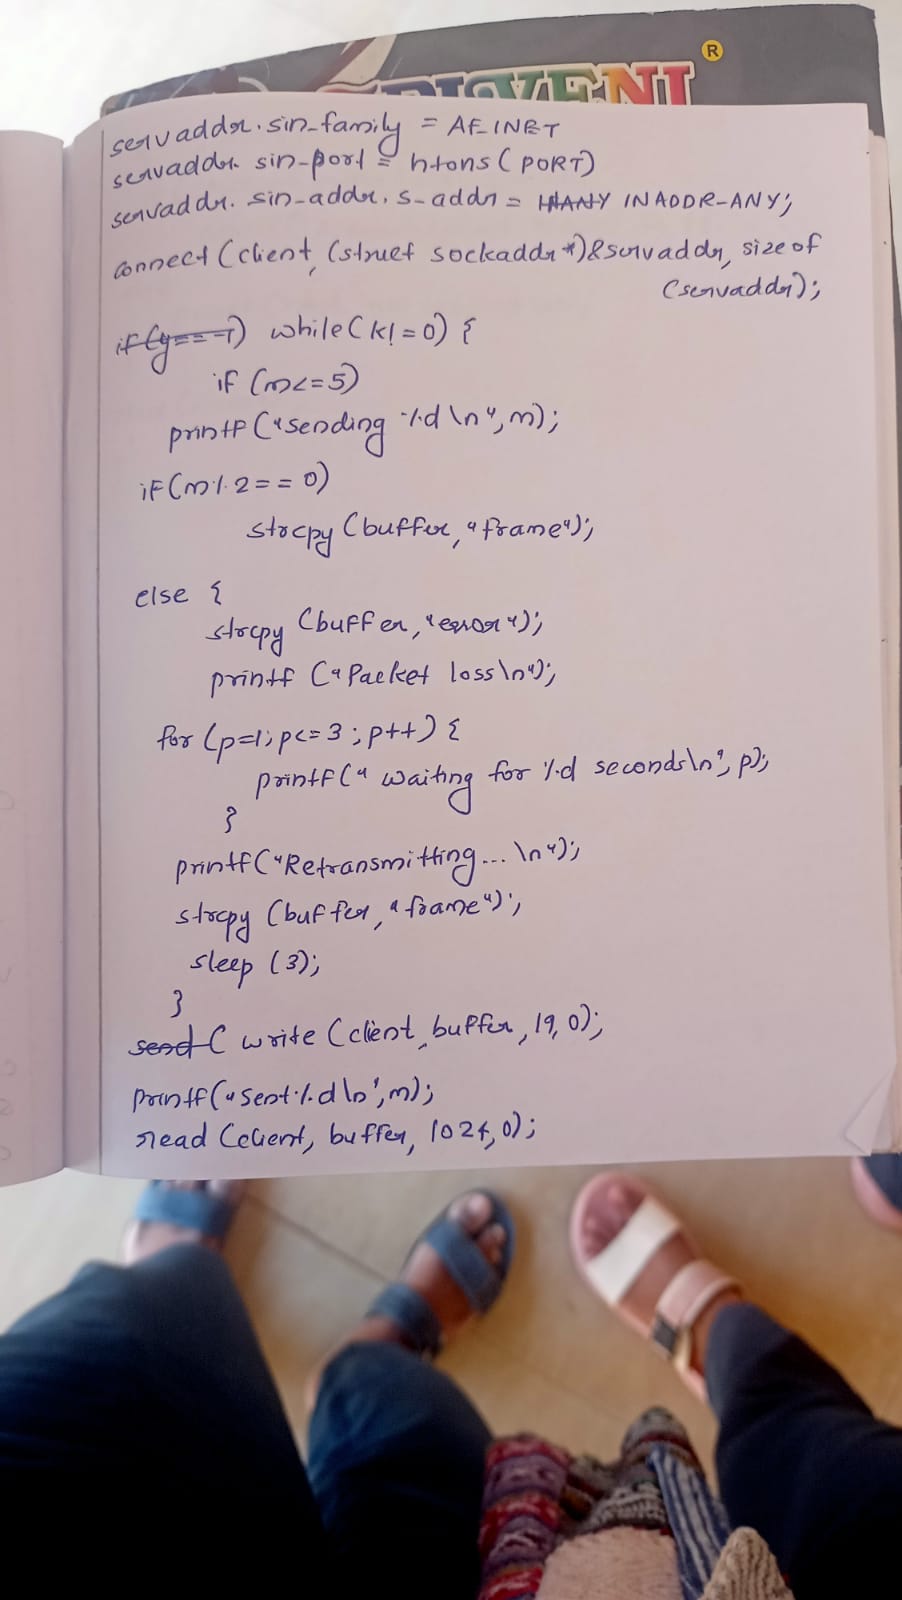 TRIVENI
®
servaddr.sin_family = AF_INET
servaddr. sin-port = htons (PORT)
servaddr. sin-addr. s-addr = INADDR-ANY;
connect (client, (struct sockaddr *)&servaddr, size of
(servaddr);
if(y==-1) while(k!=0) {
if (m<=5)
printf ("sending %d \n", m);
if(m%2==0)
strcpy (buffer, "frame");
else {
strcpy (buffer, "error");
printf ("Packet loss\n");
for (p=1; p<=3; p++) {
printf(" waiting for %d seconds\n", p);
}
printf("Retransmitting... \n");
strcpy (buffer, "frame");
sleep (3);
}
send ( write (client, buffer, 19, 0);
printf("Sent %d\n", m);
read (client, buffer, 1024, 0);